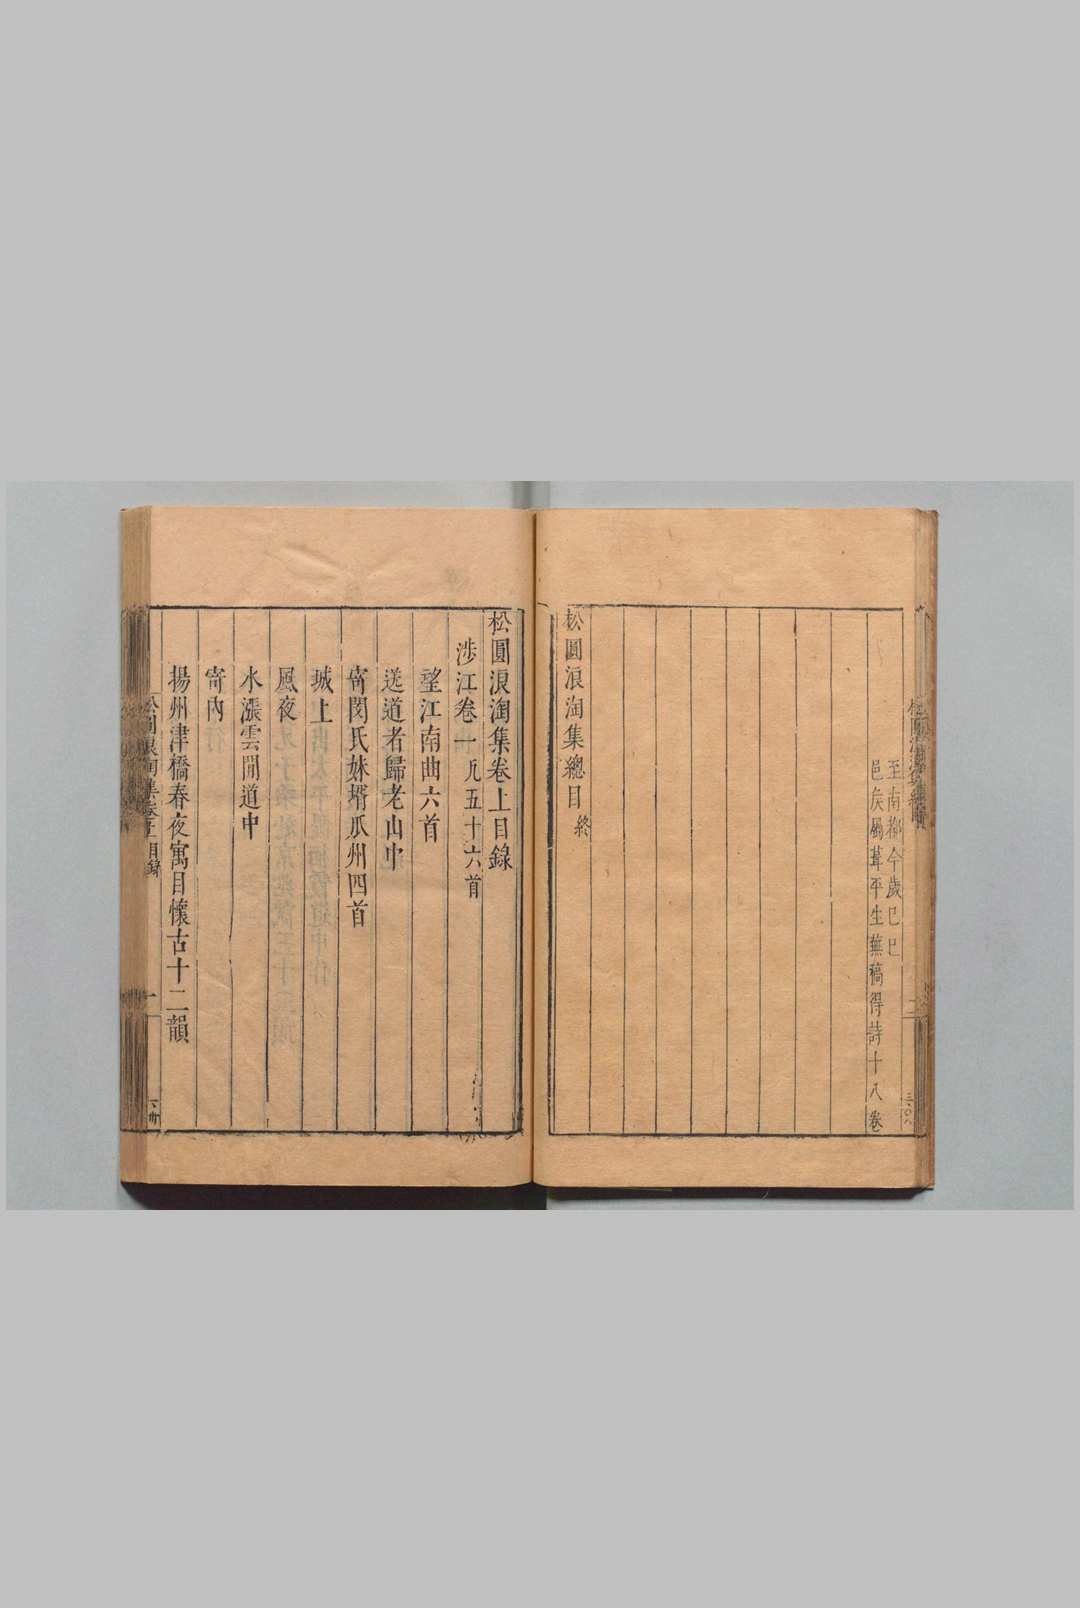 至南都今歲己巳
邑矦屬葺平生蕪稿得詩十八卷
松圓浪淘集總目終
松圓浪淘集卷上目錄
涉江卷一凡五十六首
望江南曲六首
送道者歸老山中
寄閔氏妹壻瓜州四首
城上
風夜
水漲雲間道中
寄內
揚州津橋春夜寓目懷古十二韻